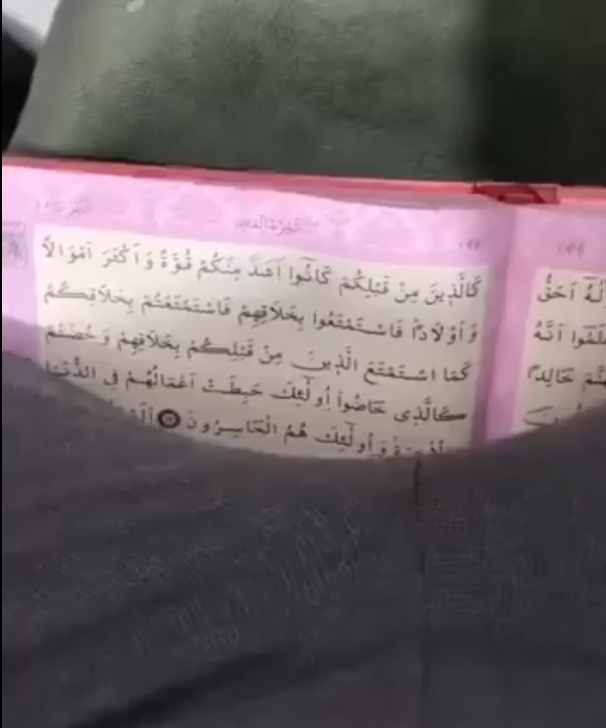 الجزء العاشر
١٩٧
كَالَّذِينَ مِنْ قَبْلِكُمْ كَانُوا اَشَدَّ مِنْكُمْ قُوَّةً وَاَكْثَرَ اَمْوَالًا
وَاَوْلَادًا فَاسْتَمْتَعُوا بِخَلَاقِهِمْ فَاسْتَمْتَعْتُمْ بِخَلَاقِكُمْ
كَمَا اسْتَمْتَعَ الَّذِينَ مِنْ قَبْلِكُمْ بِخَلَاقِهِمْ وَخُضْتُمْ
كَالَّذِى خَاضُوا اُولٰٓئِكَ حَبِطَتْ اَعْمَالُهُمْ فِى الدُّنْيَا
وَاُولٰٓئِكَ هُمُ الْخَاسِرُونَ
لَهُٓ اَحَقُّ
اَنَّهُ
خَالِدًا